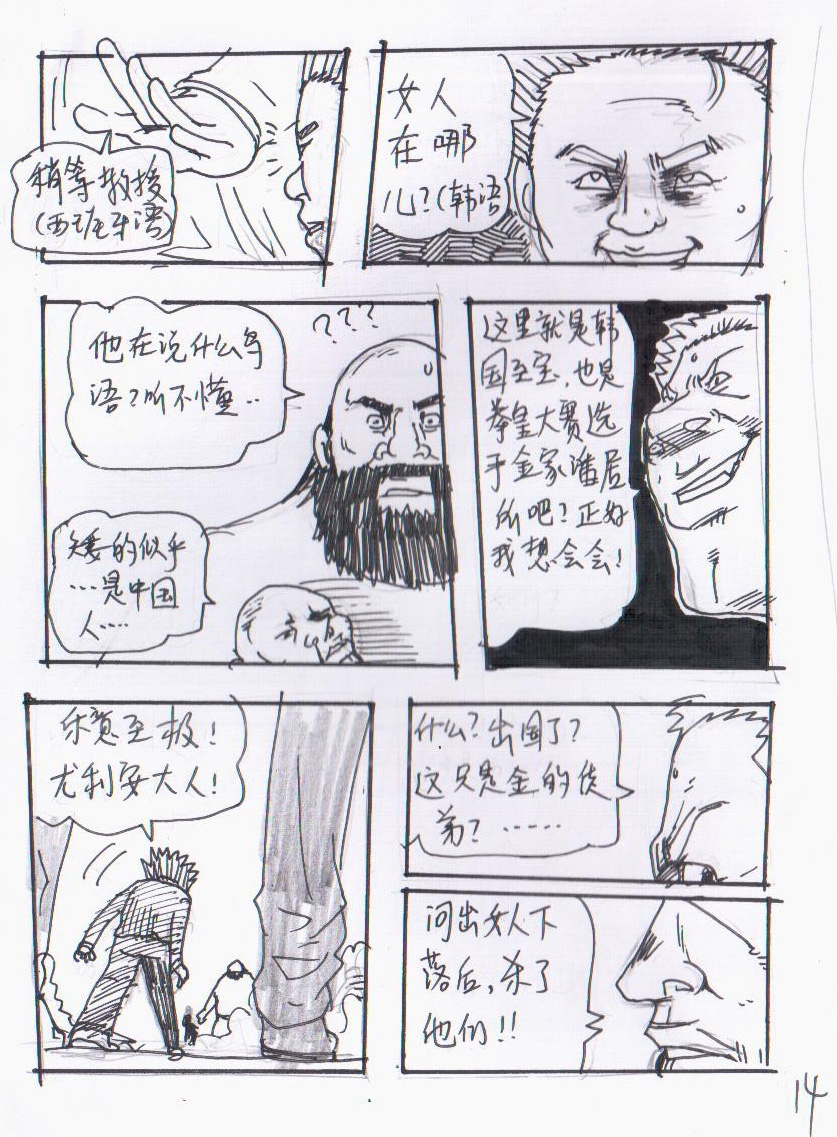 稍等教授
(西班牙语)
女人
在哪
儿?(韩语
???
他在说什么鸟
语?听不懂..
矮的似乎
...是中国
人....
这里就是韩
国至宝,也是
拳皇大赛选
手金家潘居
所吧?正好
我想会会!
乐意至极!
尤利安大人!
什么?出国了?
这只是金的徒
弟?......
问出女人下
落后,杀了
他们!!
14